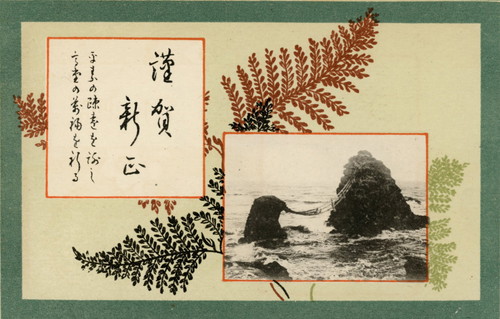 謹賀
新正
平素の疎遠を謝し
高堂の万福を祈る